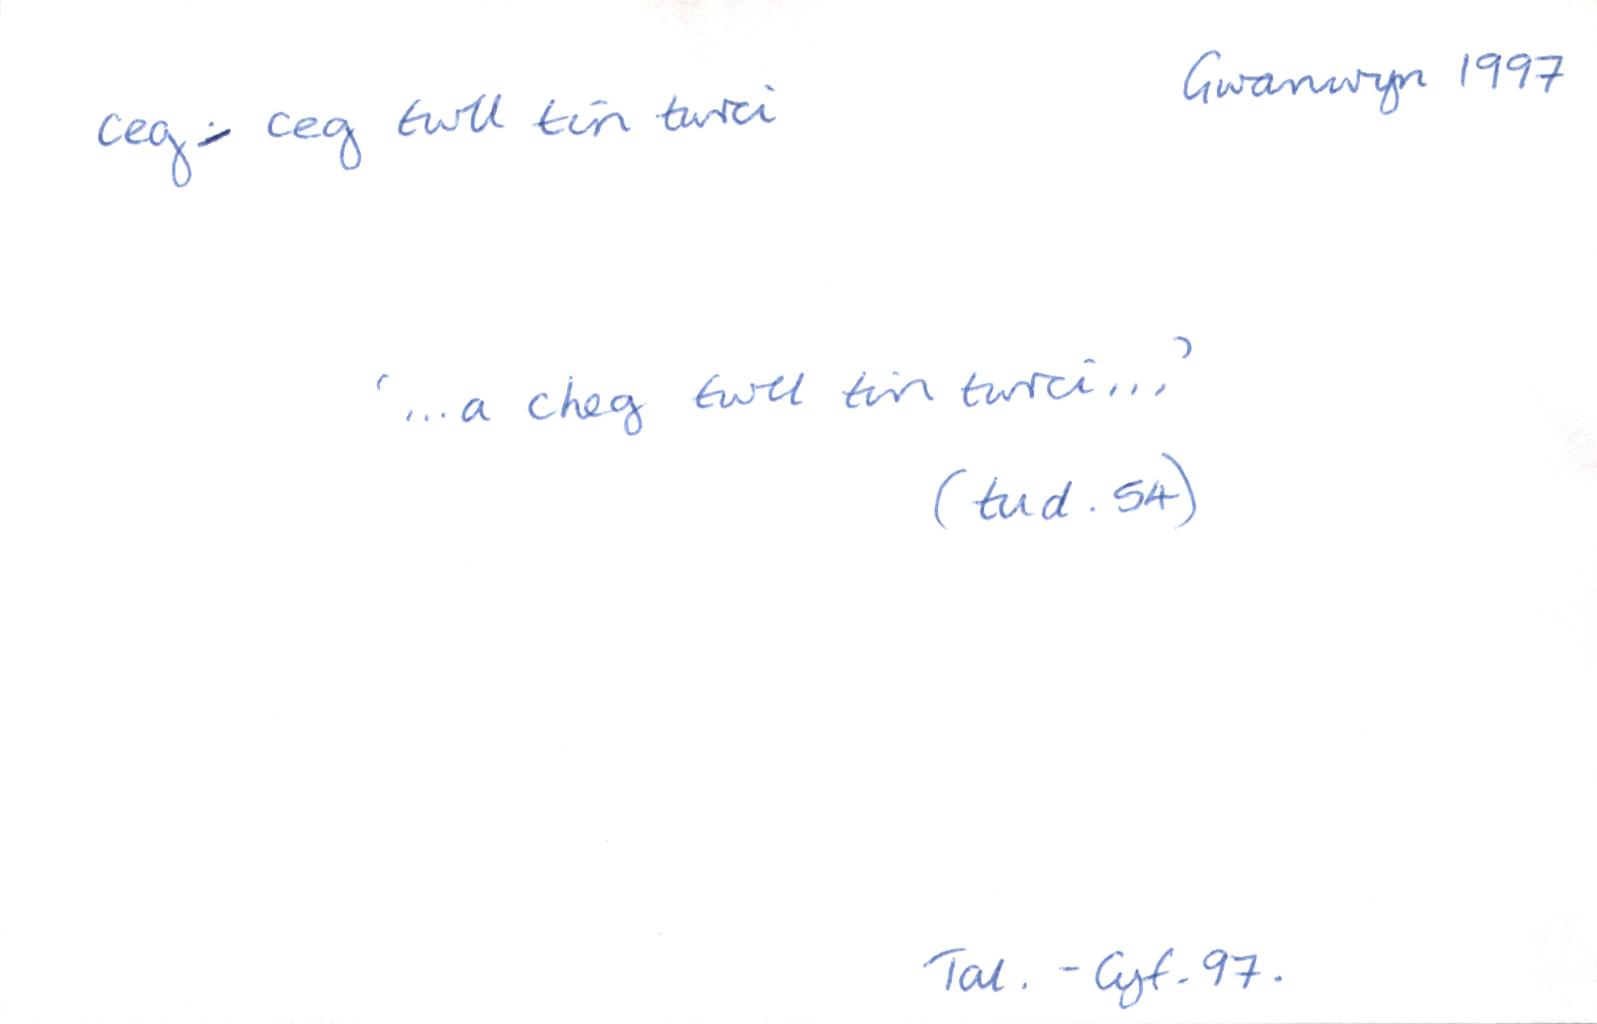 Gwanwyn 1997
ceg :- ceg twll tin twrci
'...a cheg twll tin twrci...'
(tud. 54)
Tal. - Cyf. 97.